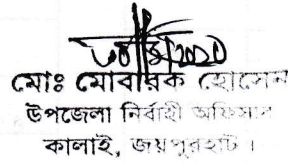 মোঃ মোবারক হোসেন
উপজেলা নির্বাহী অফিসার
কালাই, জয়পুরহাট ।